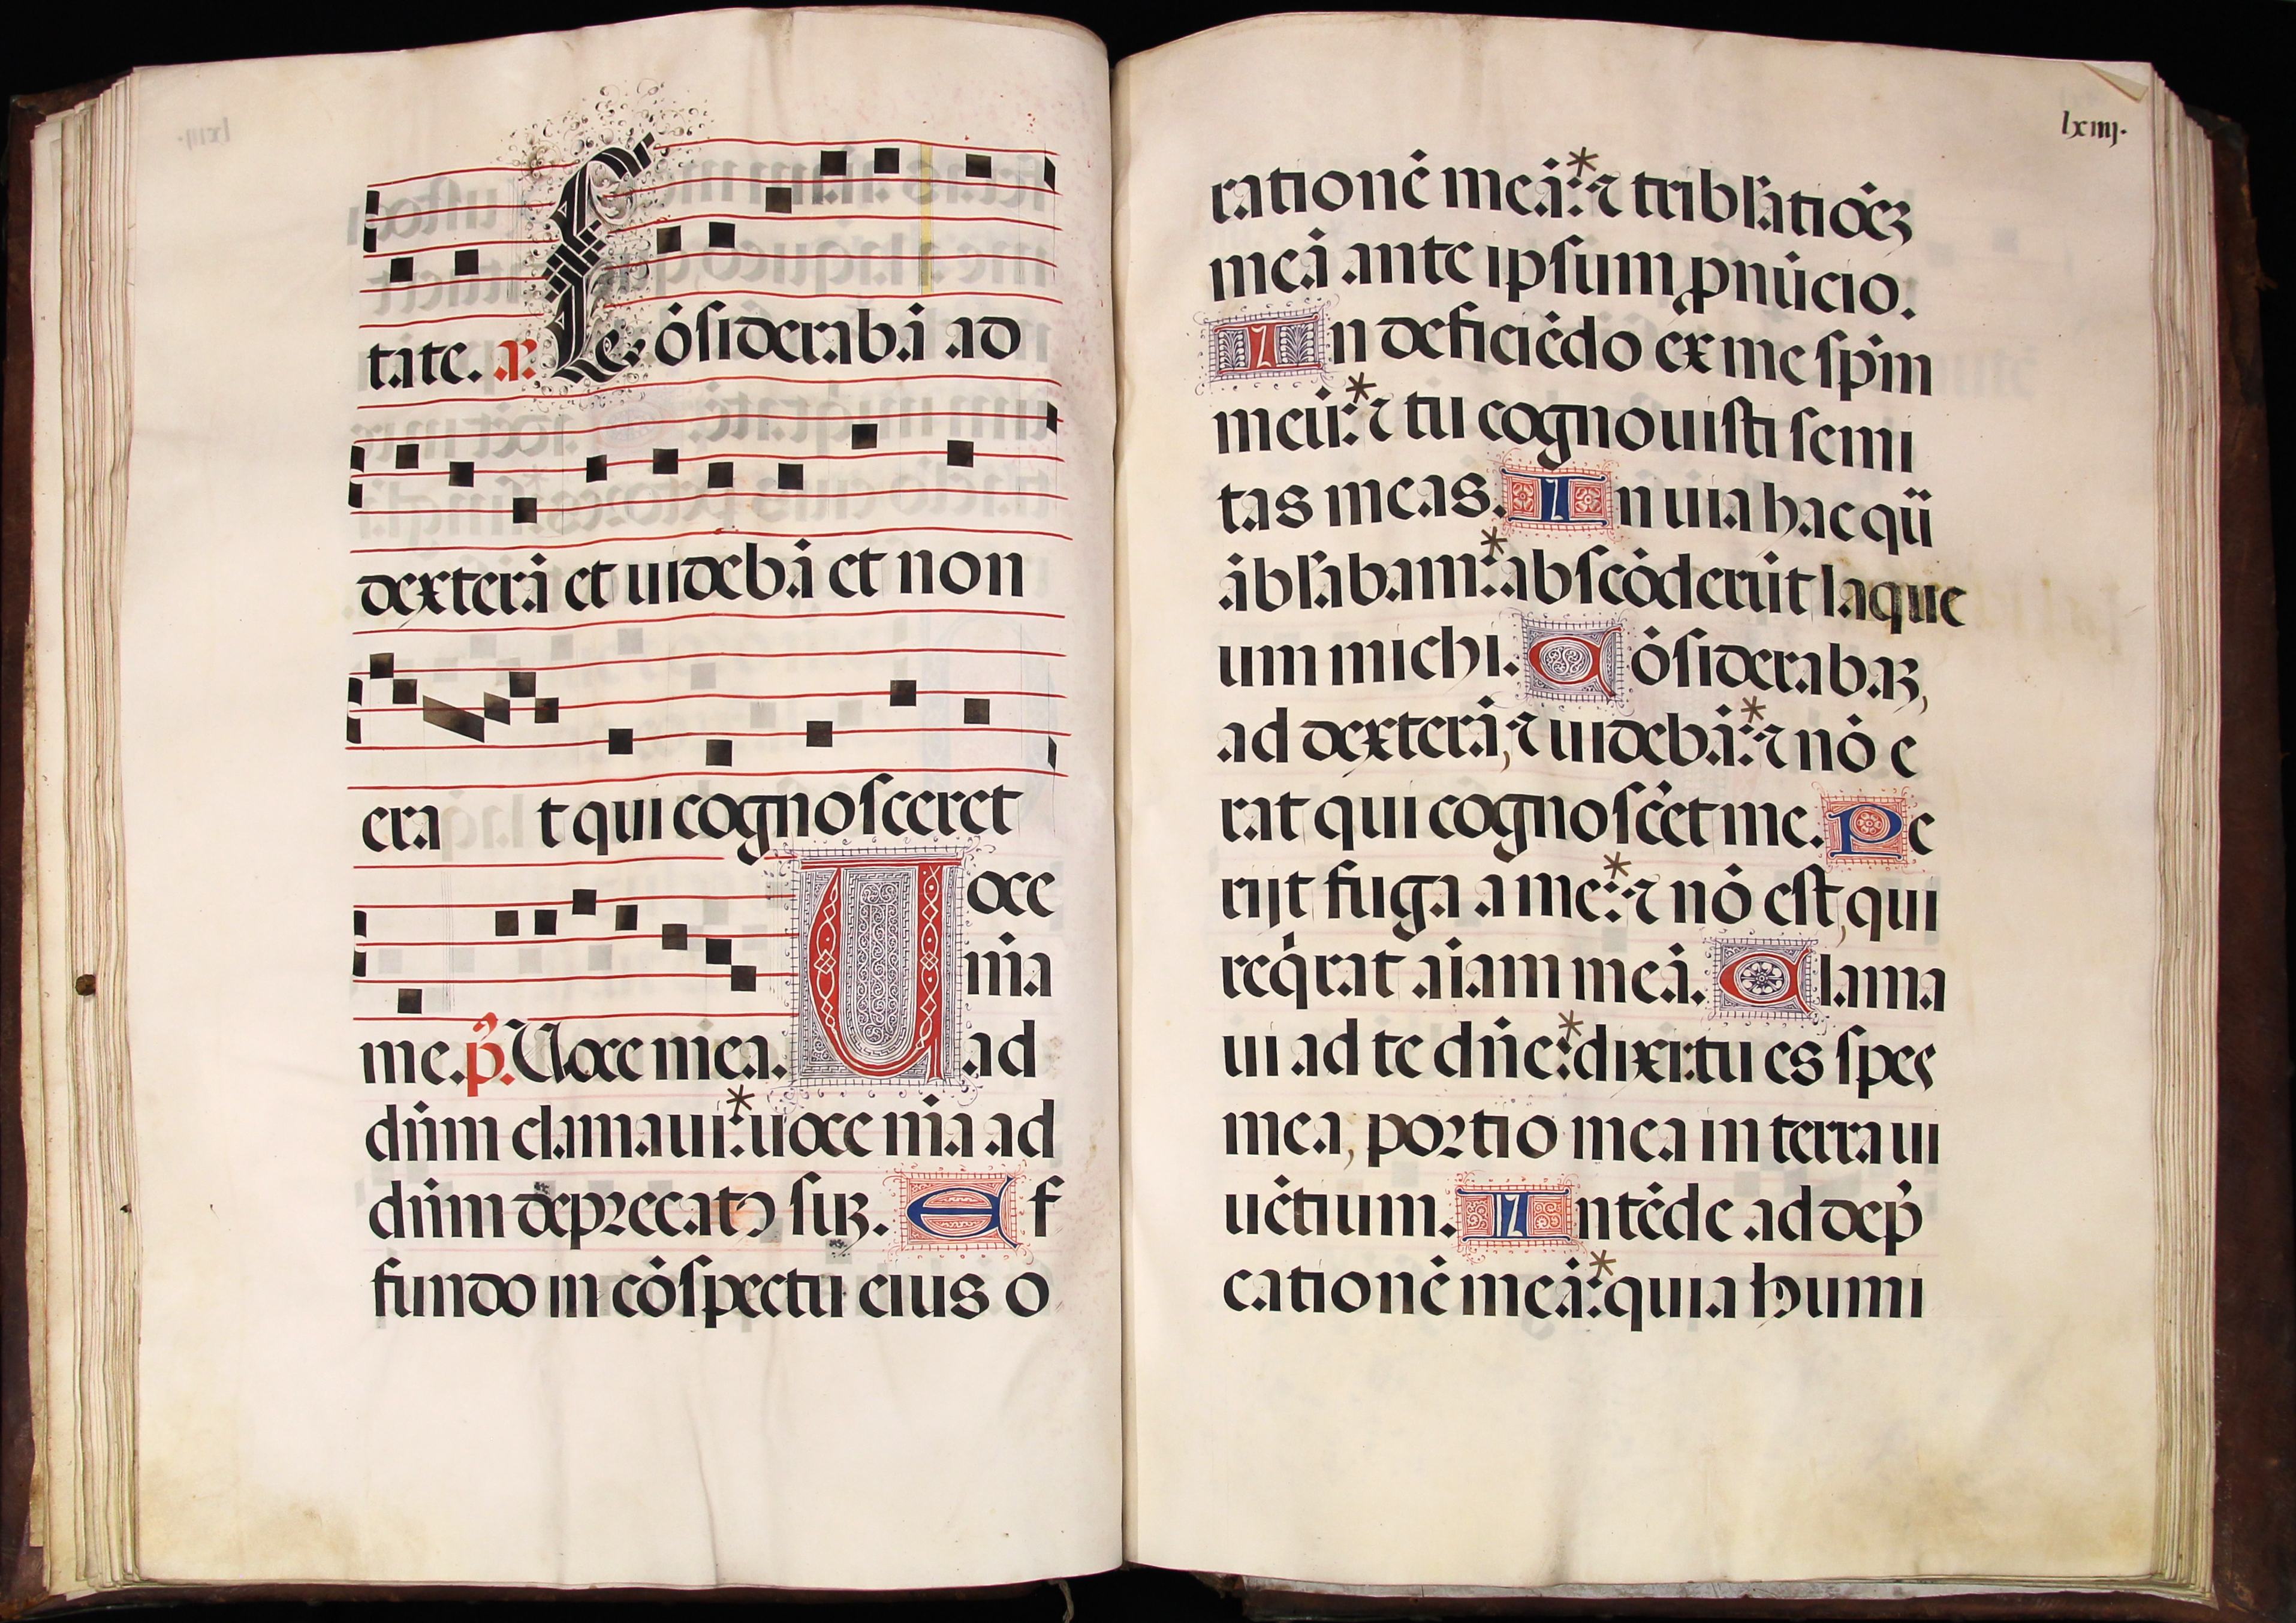 tate. a. Cōsiderabā ad
dexterā et uidebā et non
era t qui cognosceret
me. p̄. Uoce mea. Uoce
mīa
ad
dn̄m clamaui: * uoce mīa ad
dn̄m deprecatꝰ suꝫ. Ef
fundo in cōspectu eius o
lxiiij.
rationē meā: * ⁊ tribl̄atiōeꝫ
meā ante ipsum ꝓnūcio.
In deficiēdo ex me sp̄m
meū: * ⁊ tu cognouisti semi
tas meas. In uia hac qū
ābl̄abam: * abscōderūt laque
um michi. Cōsiderabaꝫ,
ad dexterā, ⁊ uidebā: * ⁊ nō e
rat qui cognoscēt me. Pe
rijt fuga a me: * ⁊ nō est, qui
reqͥrat aīam meā. Clama
ui ad te dn̄e: * dixi: tu es spes
mea, portio mea in terra ui
uētium. Intēde ad dep̄
cationē meā: * quia humi